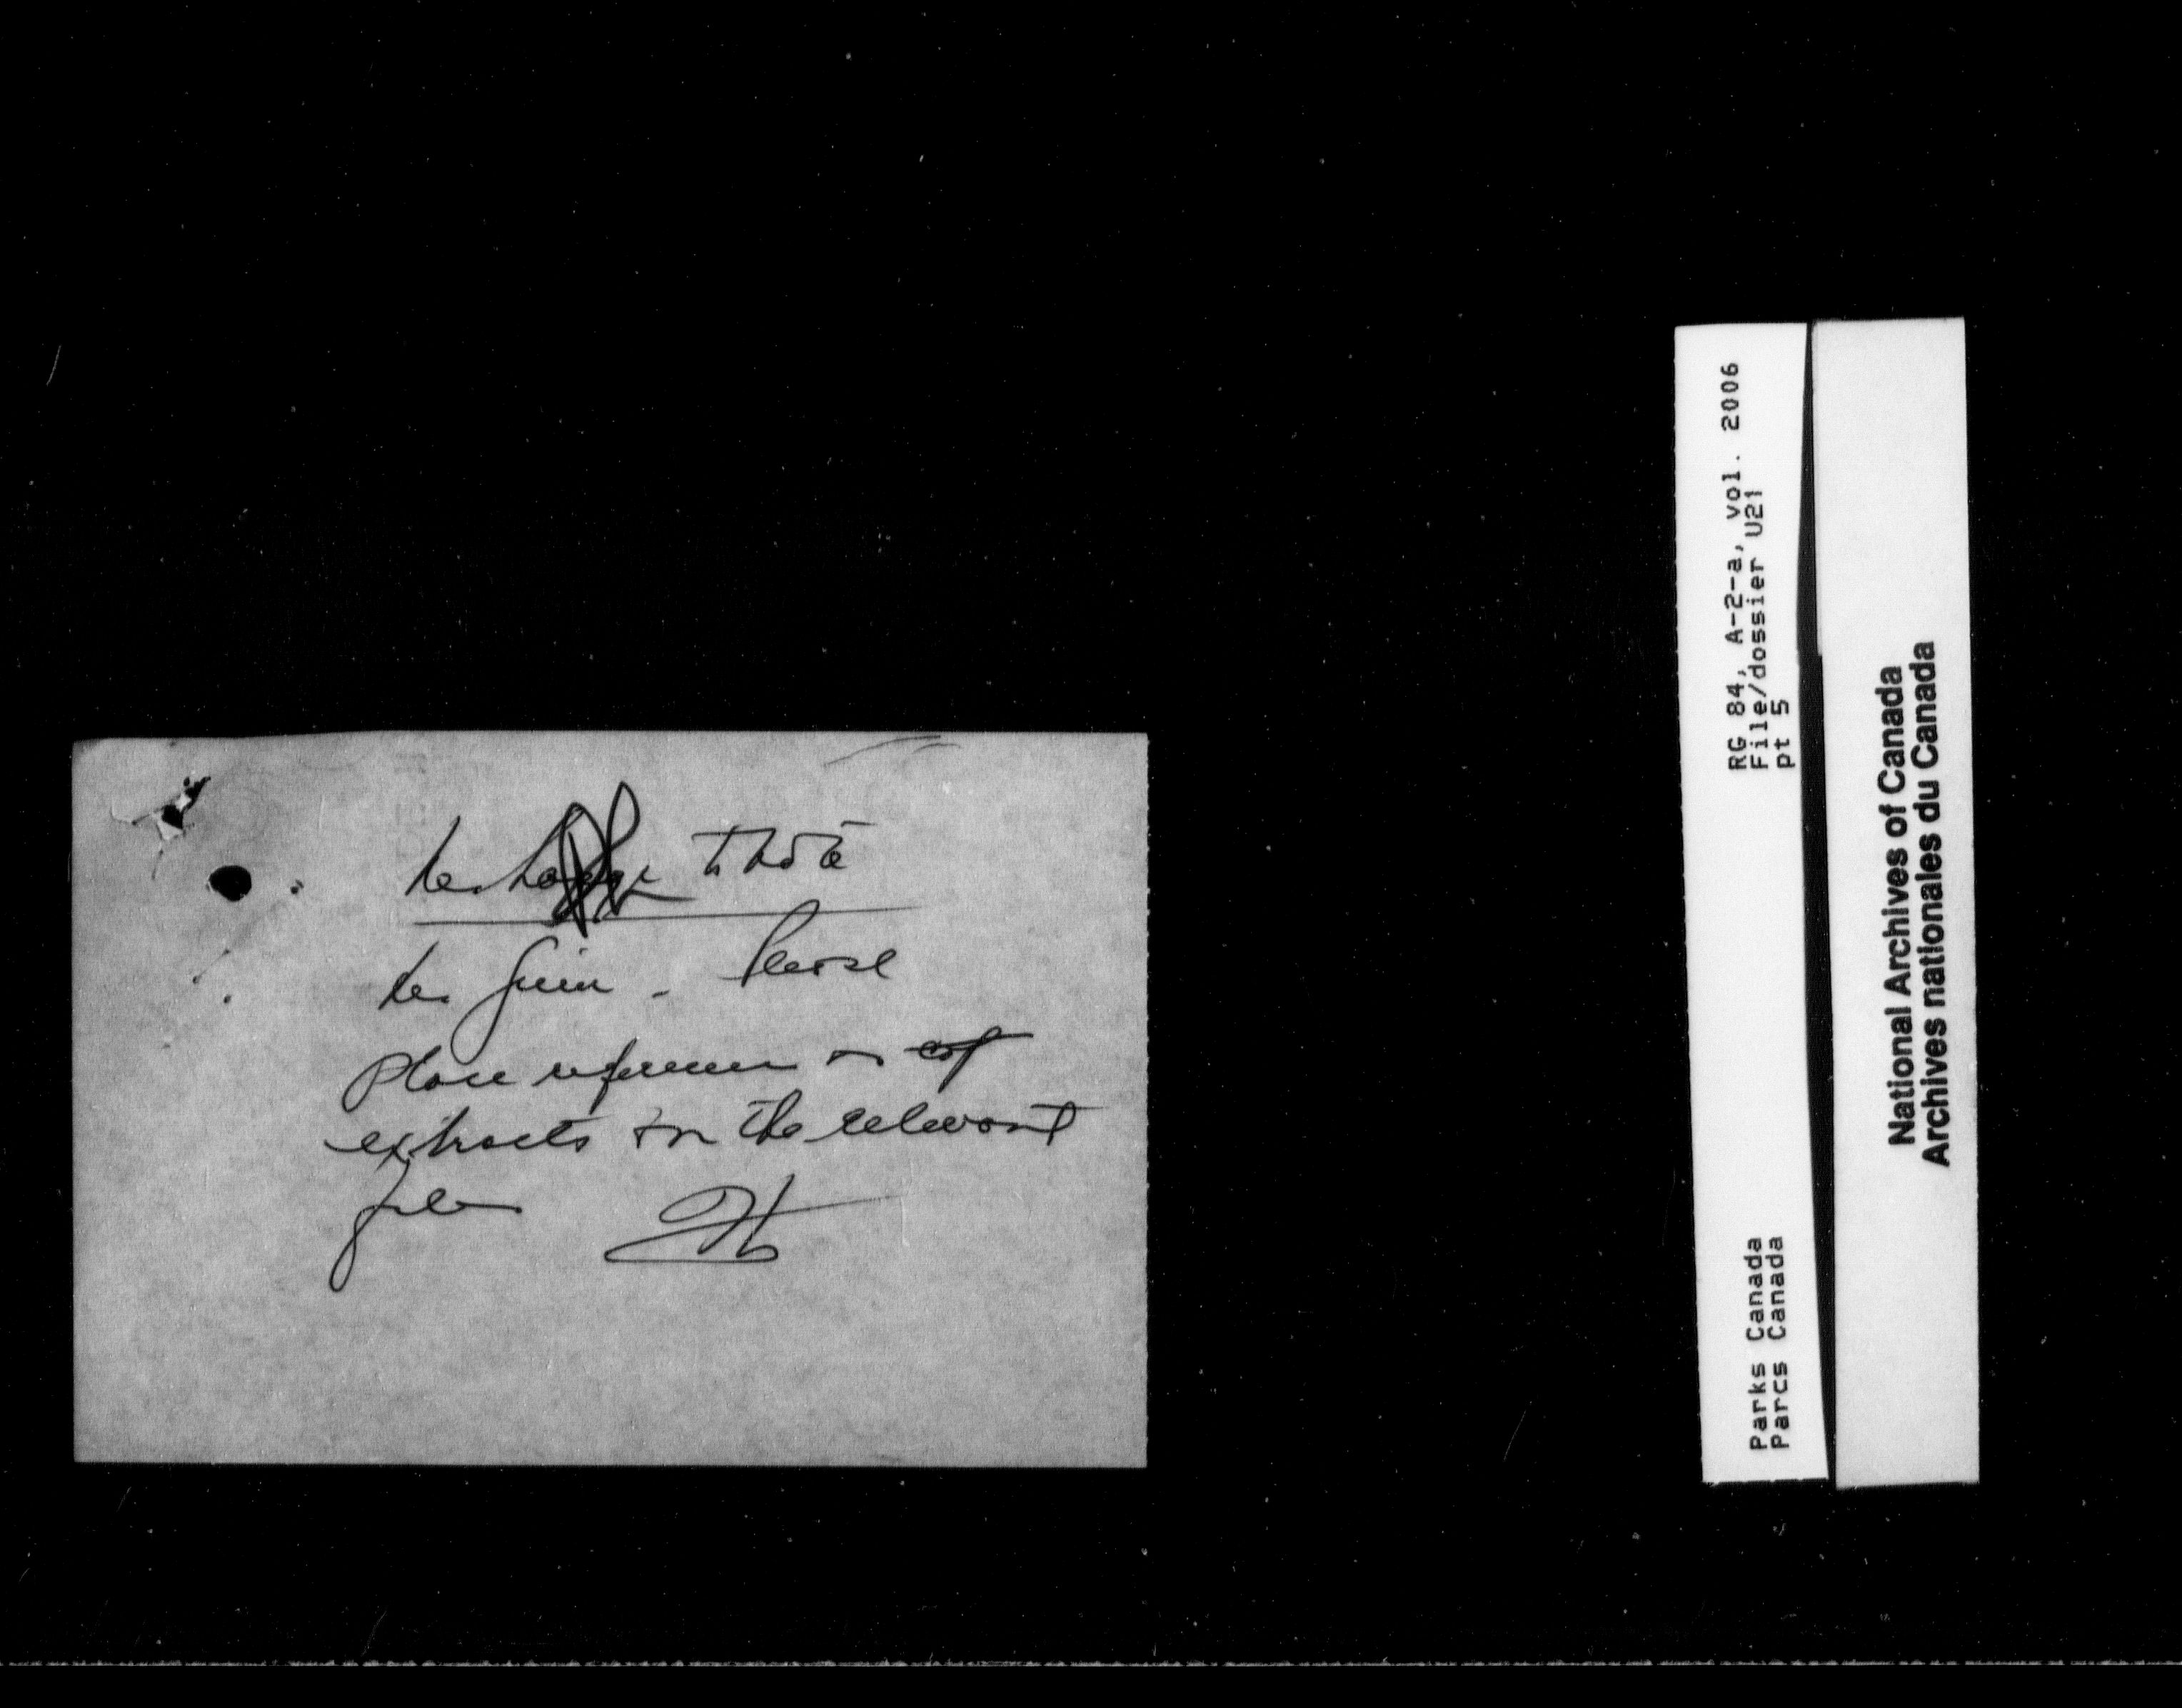 to note
Please
place reference or
extracts on the relevant
files
RG 84, A-2-a, vol. 2006
File/dossier U21
pt 5
Parks Canada
Parcs Canada
National Archives of Canada
Archives nationales du Canada